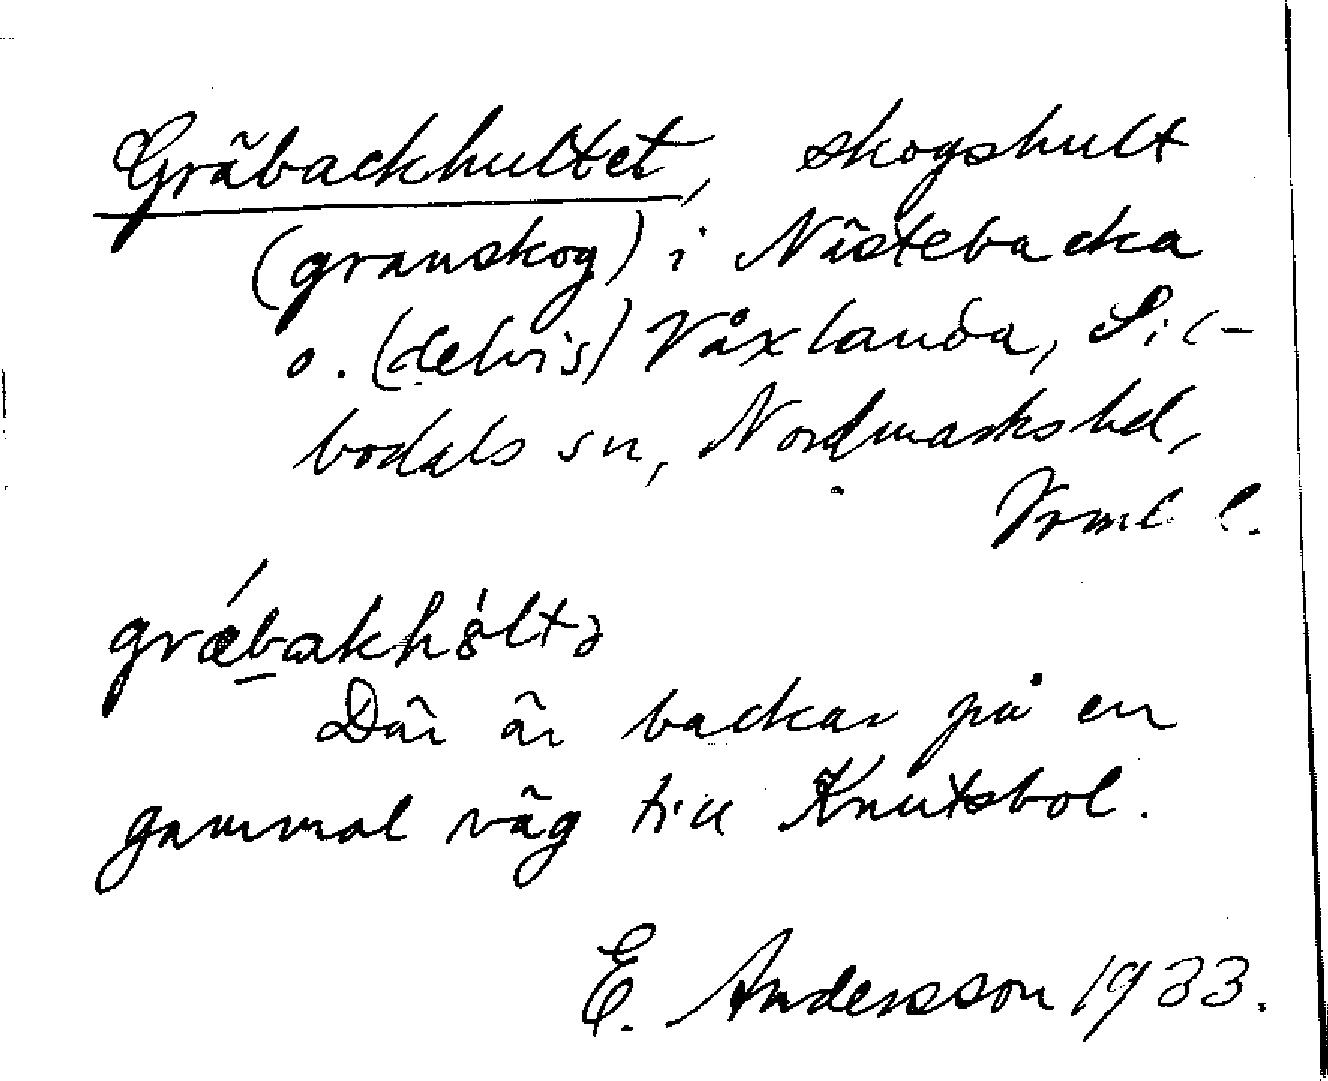 Gräbackhultet, skogshult
(granskog) i Nästebacka
o. (delvis) Våxlanda, Sil-
bodals sn, Nordmarks hd,
Vrml. l.
grǽbakhȯ́ltə
Där är backar på en
gammal väg till Knutsbol.
E. Andersson 1933.